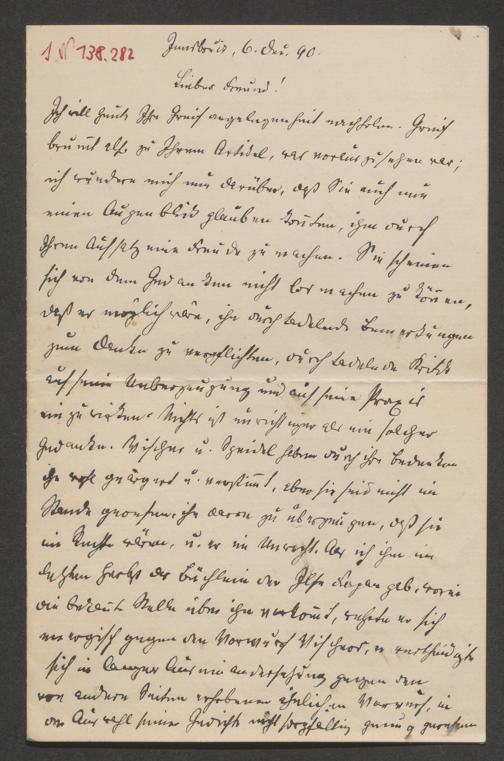 I N 138.282
Innsbruck, 6. Dez. 90.
Lieber Freund!
Ich will heute Ihre Greif angelegenheit nachholen. Greif
brummt also zu Ihrem Artikel, was vorauszusehen war;
ich wundere mich nur darüber, daß Sie auch nur
einen Augenblick glauben konnten, ihm durch
Ihren Aufsatz eine Freude zu machen. Sie scheinen
sich von dem Gedanken nicht los machen zu können,
daß es möglich wäre, ihn durch tadelnde Bemerkungen
zum Danke zu verpflichten, durch tadelnde Kritik
auf seine Ueberzeugung und auf seine Praxis
einzuwirken. Nichts ist unrichtiger als ein solcher
Gedanke. Vischer u. Speidel haben durch ihre Bedenken
ihn wohl geärgert u. verstimmt, aber sie sind nicht im
Stande gewesen, ihn davon zu überzeugen, daß sie
im Rechte wären, u. er im Unrecht. Als ich ihm im
letzten Herbst das Büchlein der Ilse Frapan gab, worin
die bekannte Stelle über ihn vorkommt, wehrte er sich
energisch gegen den Vorwurf Vischers, er vertheidigte
sich in langer Auseinandersetzung gegen den
von anderen Seiten erhobenen ähnlichen Vorwurf, in
der Auswahl seiner Gedichte nicht sorgfältig genug gewesen